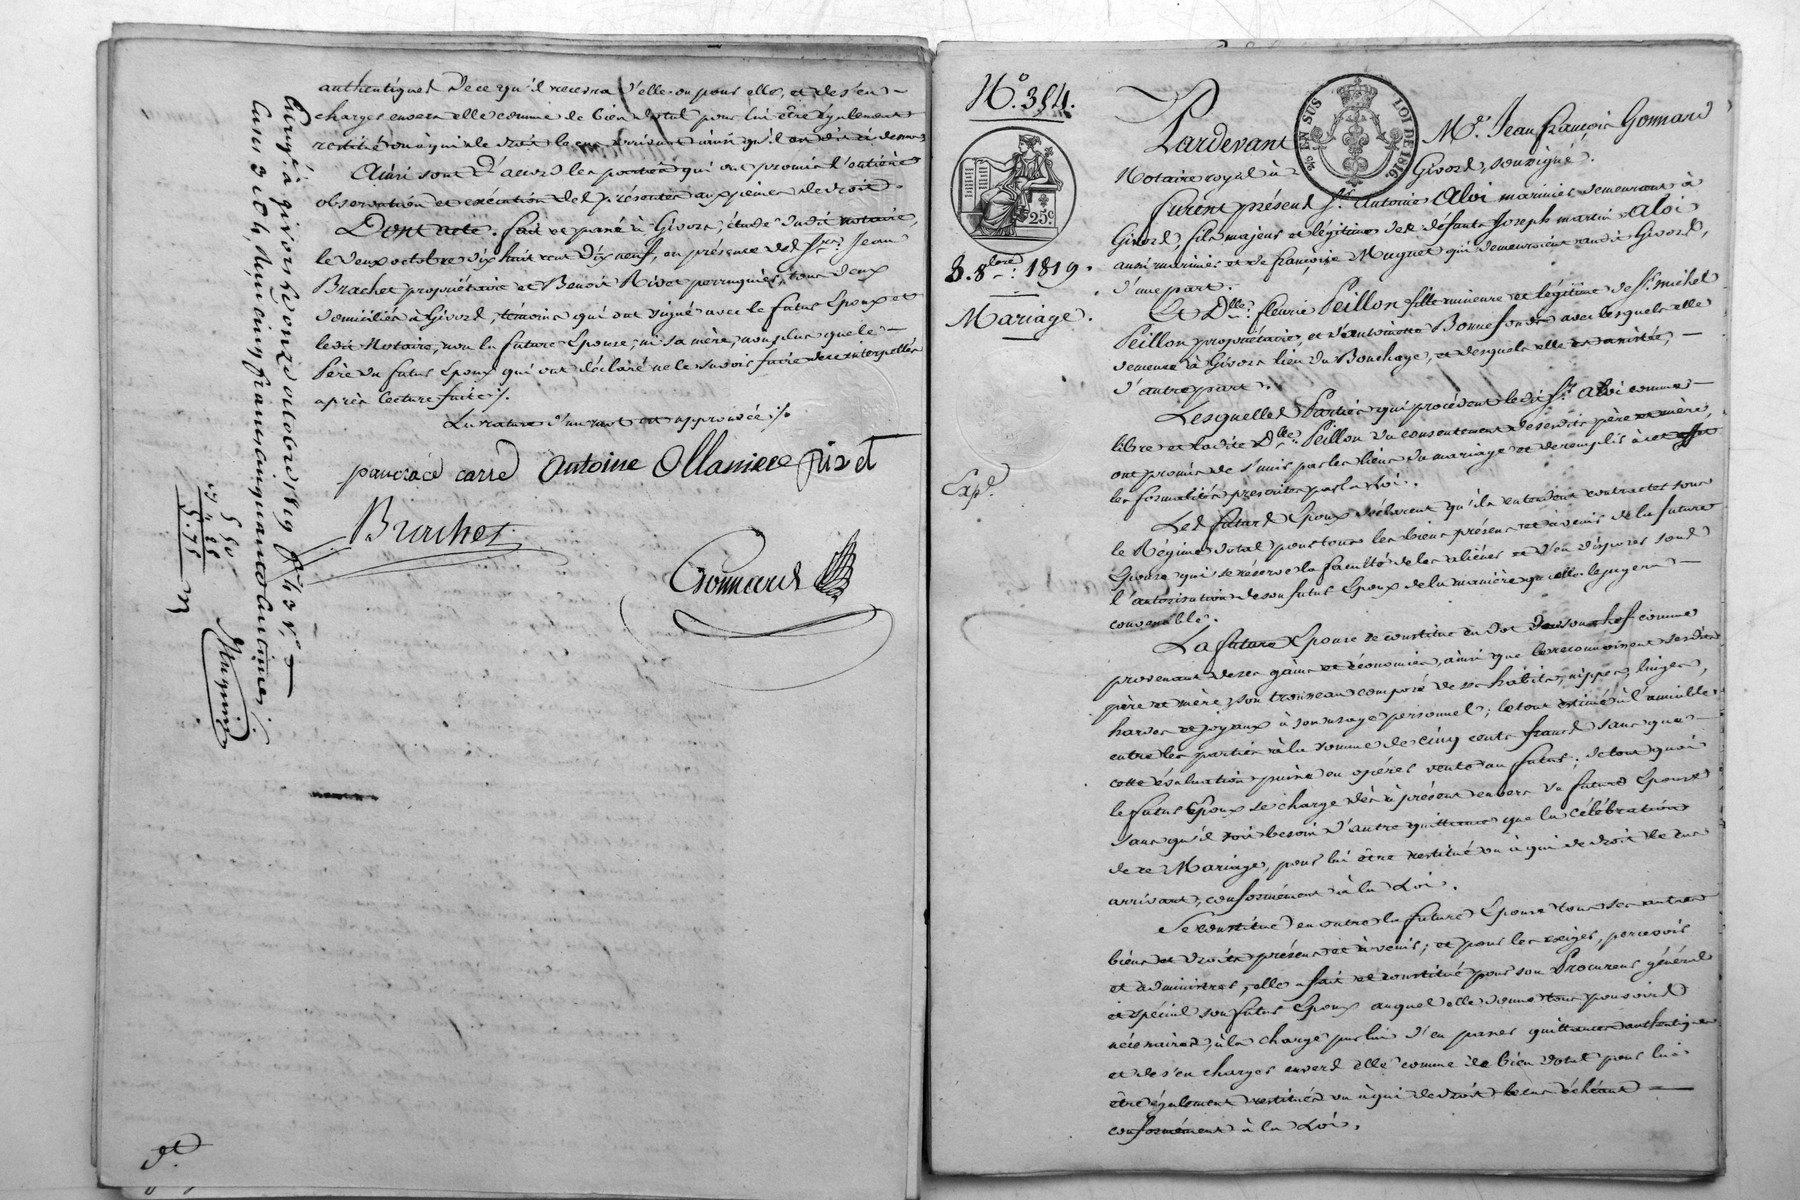 authentiques de ce qu'il recevra d'elle ou pour elle, et de s'en
charger envers elle comme de bien dotal pour lui être également
restitué ou à qui de droit le cas arrivant ainsi qu'il
Ainsi sont d'accord les parties qui ont promis l'entière
observation et exécution des présentes aux peines de droit.
Dont acte. fait et passé à Givors, étude dudit notaire,
le deux octobre dix huit cent dix neuf, en présence des Srs. Jean
Brachet propriétaire et Benoît Rivet perruquier, tous deux
domiciliés à Givors, témoins qui ont signé avec le futur Epoux et
ledit Notaire, non la future Epouse, ni sa mère, non plus que le
Père du futur Epoux qui ont déclaré ne le savoir faire de ce interpellés
après lecture faite ./.
La rature d'un mot est approuvée ./.
pancrace carre antoine Ollaniere rivet
Brachet
Gonnard
Enregé. à givors le onze octobre 1819 fo. 43 vo.
Cases 3 et 4, Reçu cinq francs cinquante centimes
5 50
5.75
N°. 354.
25c
3. 8bre. 1819.
Mariage.
Expé.
EN SUS
LOI DE 1816.
Pardevant Me. Jean françois Gonnard
Notaire royal à Givors, soussigné.
furent présens Sr. Antoine Aloi marinier demeurant à
Givors, fils majeur et légitime des défunts Joseph martin Aloi
aussi marinier et de françoise Muguet qui demeuroient audit Givors,
d'une part.
Et Dlle. fleurie Peillon fille mineure et légitime de Sr. michel
Peillon propriétaire, et d'antoinette Bonnefond avec lesquels elle
demeure à Givors lieu du Bouchage, et desquels elle est assistée,
d'autre part.
Lesquelles Parties qui procèdent ledit Sr. Aloi comme
libre et ladite Dlle. Peillon du consentement de sesdits père et mère,
ont promis de s'unir par les liens du mariage et de remplir à cet effet
les formalités prescrites par la Loi.
Les futurs Epoux déclarent qu'ils entendent contracter sous
le Régime dotal pour tous les biens présens et à venir de la future
Epouse qui se réserve la faculté de les aliéner et d'en disposer sous
l'autorisation de son futur Epoux de la manière qu'elle le jugera
convenable.
La future Epouse se constitue en dot de son chef comme
provenant de ses gains et économies, ainsi que le reconnoissent sesdits
père et mère, son trousseau composé de ses habits, nippes, linges,
hardes et joyaux à son usage personnel; le tout estimé à l'amiable
entre les parties à la somme de cinq cents francs sans que
cette évaluation puisse en opérer vente au futur; de tout quoi
le futur Epoux se charge dès à présent envers sa future Epouse
sans qu'il soit besoin d'autre quittance que la célébration
de ce Mariage, pour lui être restitué ou à qui de droit le cas
arrivant, conformément à la Loi.
Se constitue en outre la future Epouse tous ses autres
biens et droits présens et à venir; et pour les exiger, percevoir
et administrer, elle fait et constitue pour son Procureur général
et spécial son futur Epoux auquel elle donne tous pouvoirs
nécessaires, à la charge par lui d'en passer quittances authentiques
et de s'en charger envers elle comme de bien dotal pour lui
être également restitués ou à qui de droit le cas échéant
conformément à la Loi.